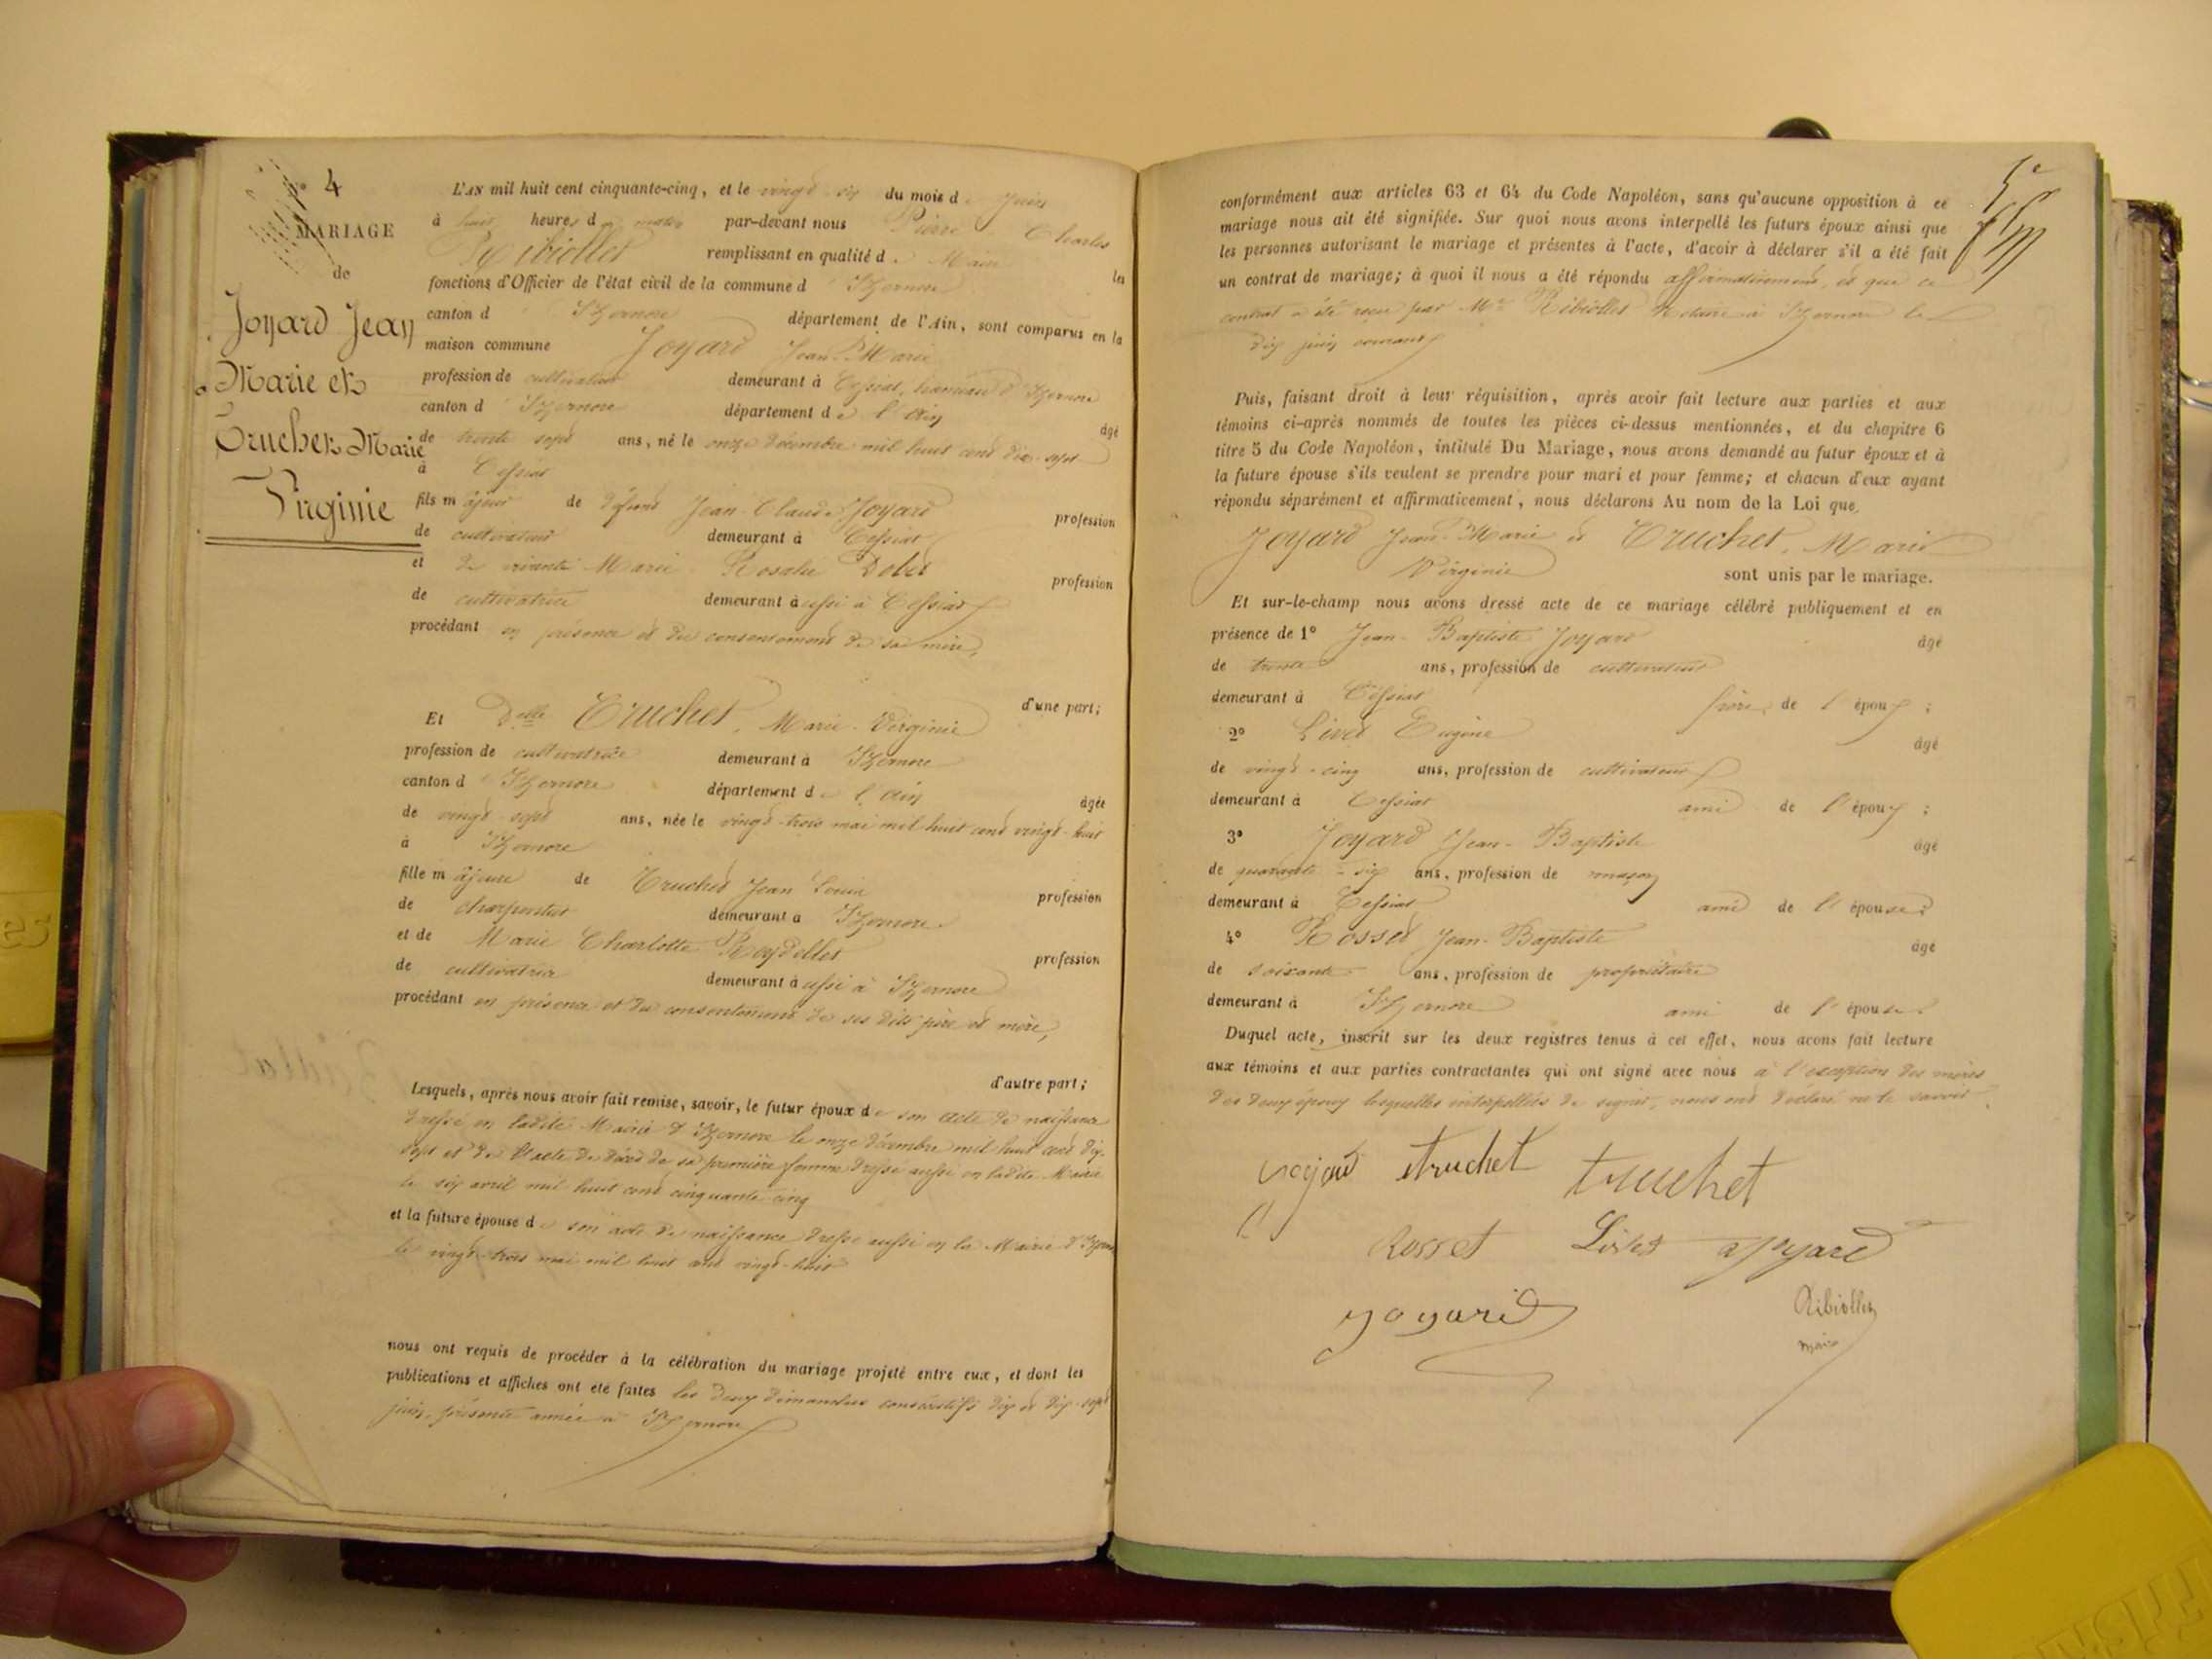 4
MARIAGE
de
Joyard Jean
Marie et
Truchet Marie
Virginie
L'AN mil huit cent cinquante-cinq, et le vingt six du mois de Juin
à huit heures du matin par-devant nous Pierre Charles
Ribiollet remplissant en qualité de Maire les
fonctions d'Officier de l'état civil de la commune d'Izernore
canton d'Izernore département de l'Ain, sont comparus en la
maison commune Joyard Jean-Marie
profession de cultivateur demeurant à Cessiat, hameau d'Izernore
canton d'Izernore département de l'Ain âgé
de trente sept ans, né le onze décembre mil huit cent dix-sept
à Cessiat
fils majeur de défunt Jean-Claude Joyard profession
de cultivateur demeurant à Cessiat
et de vivante Marie Rosalie profession
de cultivatrice demeurant aussi à Cessiat
procédant en présence et du consentement de sa mère,
d'une part;
Et Delle Truchet, Marie-Virginie
profession de cultivatrice demeurant à Izernore
canton d'Izernore département de l'Ain âgée
de vingt-sept ans, née le vingt-trois mai mil huit cent vingt-huit
à Izernore
fille majeure de Truchet Jean Louis profession
de charpentier demeurant à Izernore
et de Marie Charlotte Reydellet profession
de cultivatrice demeurant aussi à Izernore
procédant en présence et du consentement de ses dits père et mère,
d'autre part;
Lesquels, après nous avoir fait remise, savoir, le futur époux de son acte de naissance
dressé en ladite Mairie d'Izernore le onze décembre mil huit cent dix-
sept et de l'acte de décès de sa première femme dressé aussi en ladite Mairie
le six avril mil huit cent cinquante cinq
et la future épouse de son acte de naissance dressé aussi en la Mairie d'Izernore
le vingt-trois mai mil huit cent vingt-huit
nous ont requis de procéder à la célébration du mariage projeté entre eux, et dont les
publications et affiches ont été faites les deux dimanches consécutifs dix et dix-sept
juin, présente année à Izernore
5e
conformément aux articles 63 et 64 du Code Napoléon, sans qu'aucune opposition à ce
mariage nous ait été signifiée. Sur quoi nous avons interpellé les futurs époux ainsi que
les personnes autorisant le mariage et présentes à l'acte, d'avoir à déclarer s'il a été fait
un contrat de mariage; à quoi il nous a été répondu affirmativement, et que ce
contrat a été reçu par Me Ribiollet Notaire à Izernore le
dix juin courant
Puis, faisant droit à leur réquisition, après avoir fait lecture aux parties et aux
témoins ci-après nommés de toutes les pièces ci-dessus mentionnées, et du chapitre 6
titre 5 du Code Napoléon, intitulé Du Mariage, nous avons demandé au futur époux et à
la future épouse s'ils veulent se prendre pour mari et pour femme; et chacun d'eux ayant
répondu séparément et affirmativement, nous déclarons Au nom de la Loi que
Joyard Jean-Marie et Truchet, Marie
Virginie sont unis par le mariage.
Et sur-le-champ nous avons dressé acte de ce mariage célébré publiquement et en
présence de 1º Jean-Baptiste Joyard âgé
de trente ans, profession de cultivateur
demeurant à Cessiat frère de l'époux;
2º Livet Eugène âgé
de vingt-cinq ans, profession de cultivateur
demeurant à Cessiat ami de l'époux;
3º Joyard Jean-Baptiste âgé
de quarante-six ans, profession de maçon
demeurant à Cessiat ami de l'épouse;
4º Rosset Jean-Baptiste âgé
de soixante ans, profession de propriétaire
demeurant à Izernore ami de l'épouse.
Duquel acte, inscrit sur les deux registres tenus à cet effet, nous avons fait lecture
aux témoins et aux parties contractantes qui ont signé avec nous à l'exception des mères
des deux époux lesquelles interpellées de signer, nous ont déclaré ne le savoir.
truchet truchet
Rosset Livet Joyard
Joyard Ribiollet
maire